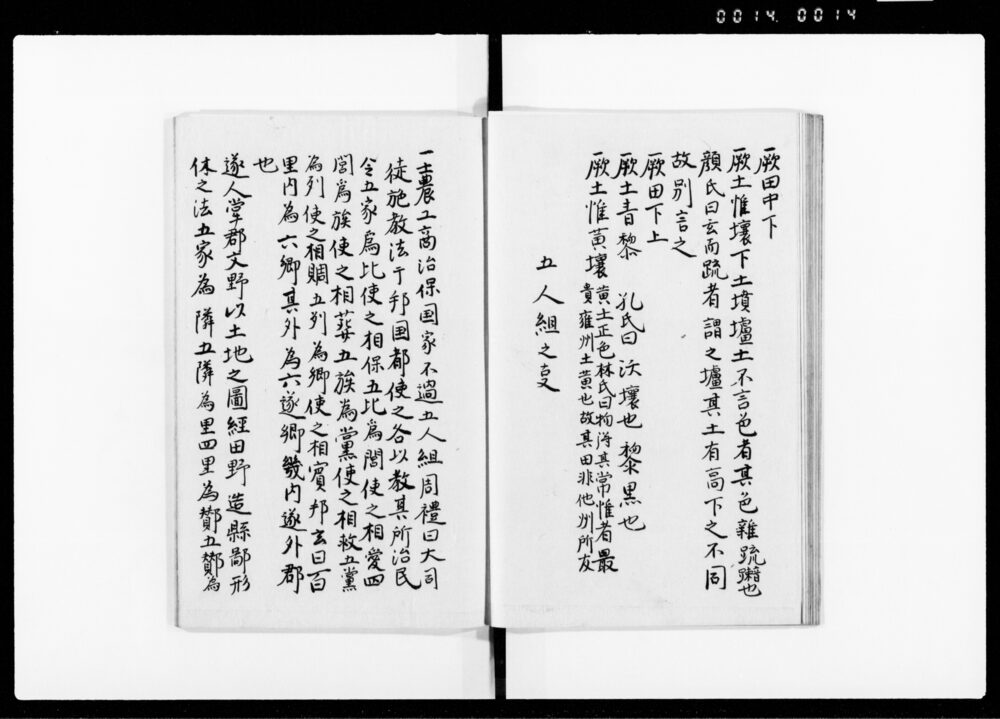 0014.0014
厥田中下
厥土惟壤下土墳壚土不言色者其色雜疏也
顔氏曰玄而疏者謂之壚其土有高下之不同
故別言之
厥田下上
厥土青黎 孔氏曰沃壤也黎黒也
厥土惟黄壤 黄土正色林氏曰物得其常惟者最
貴雍州土黄也故其田非他州所友
五人組之㕝
一士農工商治保国家不過五人組周禮曰大司
徒施教法于邦国都使之各以教其所治民
令五家為比使之相保五比為閭使之相愛四
閭為族使之相葬五族為黨使之相救五黨
為列使之相賙五列為郷使之相賓邦玄曰百
里内為六郷其外為六遂郷畿内遂外郡
也
遂人掌郡交野以土地之圖經田野造縣鄙形
体之法五家為隣五隣為里四里為酇五酇為